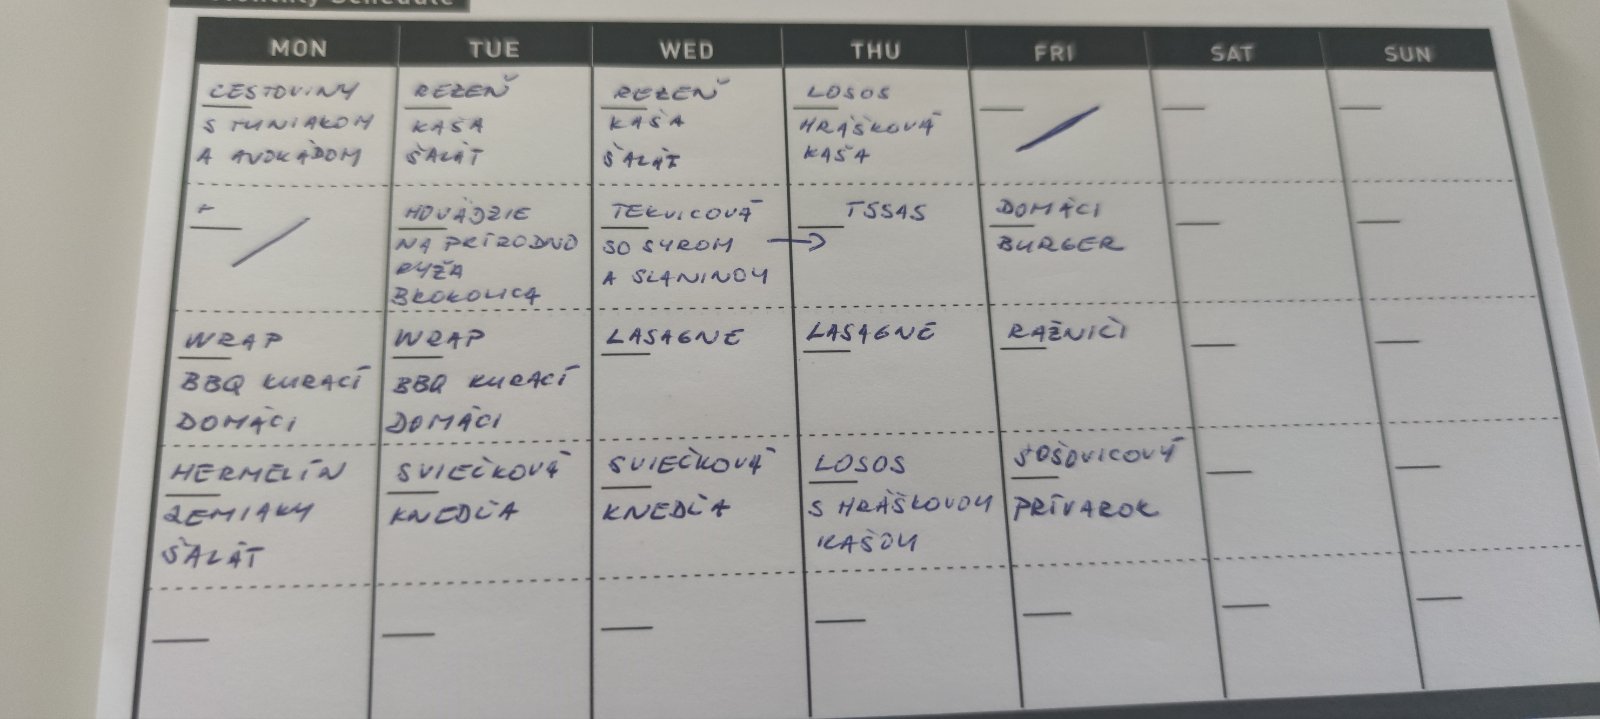 Monthly Schedule
MON TUE WED THU FRI SAT SUN
CESTOVINY
S TUNIAKOM
A AVOKÁDOM
REZEŇ
KAŠA
ŠALÁT
REZEŇ
KAŠA
ŠALÁT
LOSOS
HRÁŠKOVÁ
KAŠA
HOVÄDZIE
NA PRÍRODNO
RYŽA
BROKOLICA
TEKVICOVÁ
SO SYROM
A SLANINOU
→
TSSAS
DOMÁCI
BURGER
WRAP
BBQ KURACÍ
DOMÁCI
WRAP
BBQ KURACÍ
DOMÁCI
LASAGNE
LASAGNE
RAŽNIČI
HERMELÍN
ZEMIAKY
ŠALÁT
SVIEČKOVÁ
KNEDĽA
SVIEČKOVÁ
KNEDĽA
LOSOS
S HRÁŠKOVOU
KAŠOU
ŠOŠOVICOVÝ
PRÍVAROK